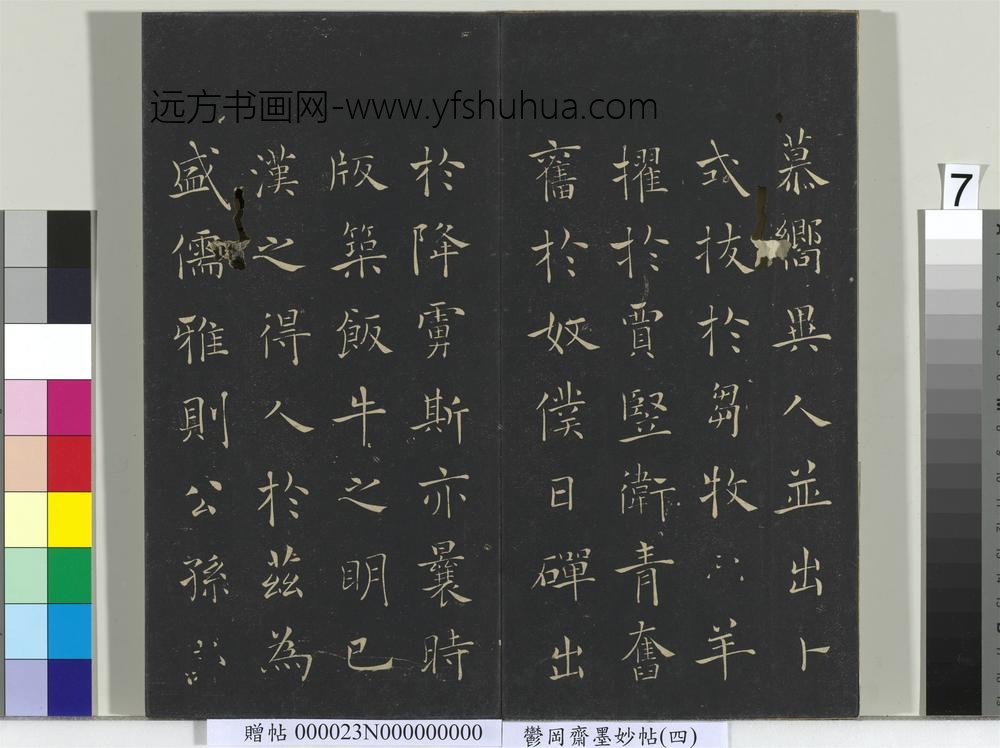 慕嚮異人並出卜
式拔於芻牧羊
擢於賈豎衛青奮
奮於奴僕日磾出
於降虜斯亦曩時
版築飯牛之明已
漢之得人於茲為
盛儒雅則公孫
远方书画网-www.yfshuhua.com
7
贈帖 000023N000000000
鬱岡齋墨妙帖(四)